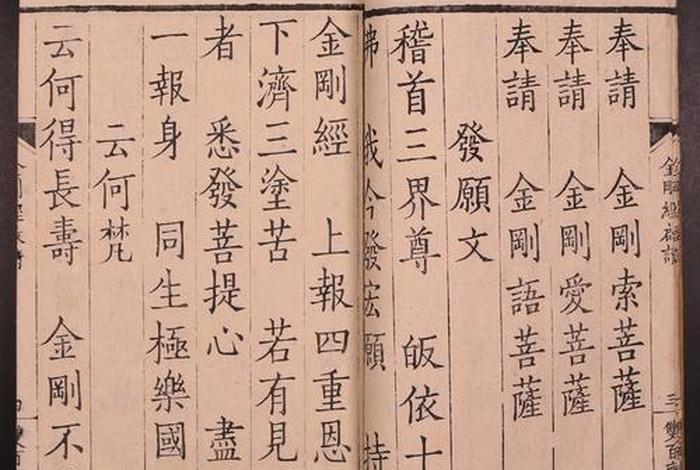 奉請 金剛索菩薩
奉請 金剛愛菩薩
奉請 金剛語菩薩
發願文
稽首三界尊 皈依十
弗 我今發宏願 持
金剛經 上報四重恩
下濟三塗苦 若有見
者 悉發菩提心 盡
一報身 同生極樂國
云何梵
云何得長壽 金剛不